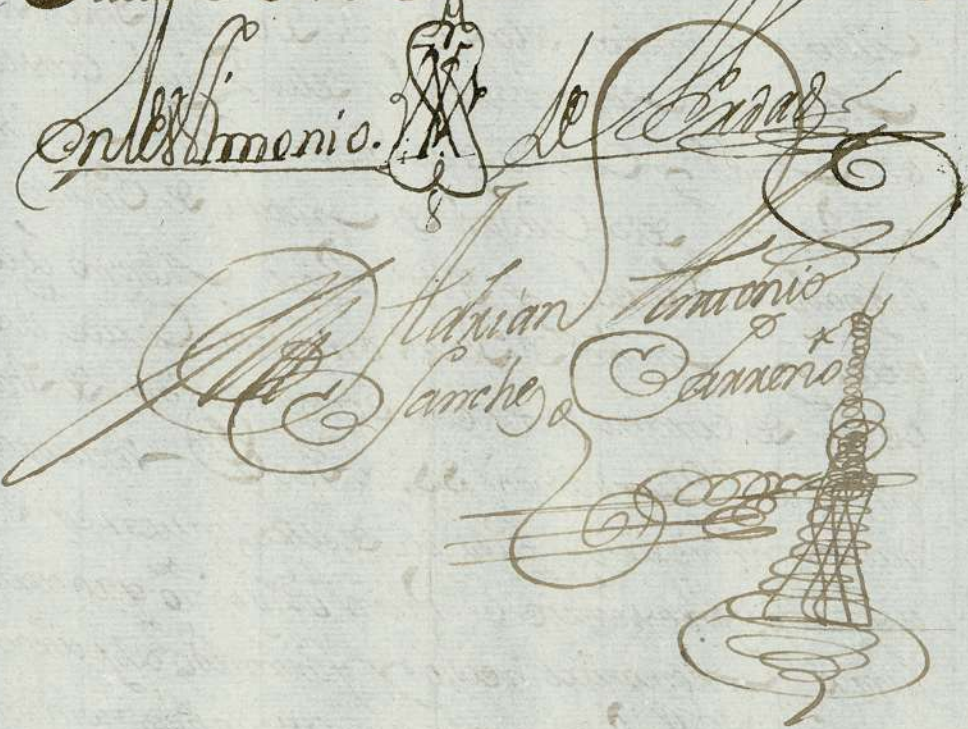 En testimonio. de Verdad
Adrian Antonio
Sanches Carreño